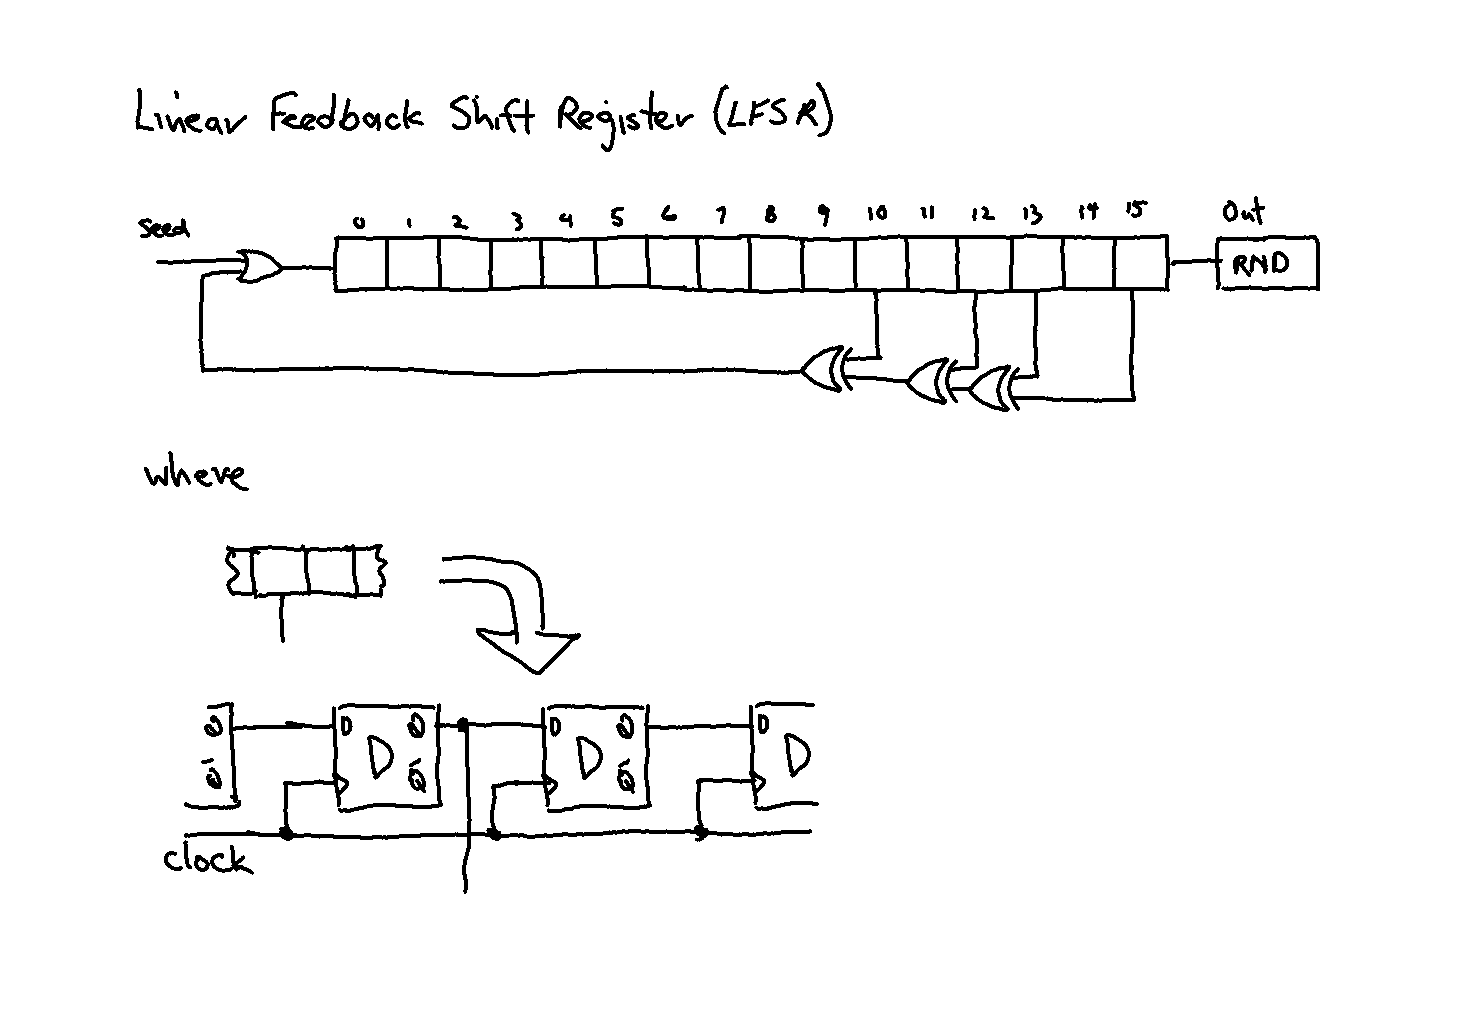 Linear Feedback Shift Register (LFSR)
Seed 0 1 2 3 4 5 6 7 8 9 10 11 12 13 14 15 Out
RND
where
Q D Q D Q D
D D D
Q̅ Q̅ Q̅
clock